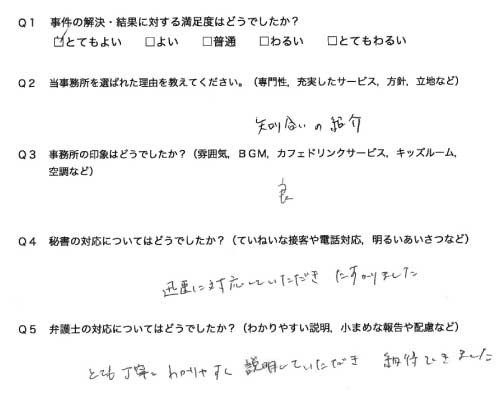 Q1 事件の解決・結果に対する満足度はどうでしたか？
☑とてもよい □よい □普通 □わるい □とてもわるい
Q2 当事務所を選ばれた理由を教えてください。（専門性，充実したサービス，方針，立地など）
知り合いの紹介
Q3 事務所の印象はどうでしたか？（雰囲気，ＢＧＭ，カフェドリンクサービス，キッズルーム，
空調など）
良
Q4 秘書の対応についてはどうでしたか？（ていねいな接客や電話対応，明るいあいさつなど）
迅速に対応していただき たすかりました
Q5 弁護士の対応についてはどうでしたか？（わかりやすい説明，小まめな報告や配慮など）
とても丁寧に わかりやすく 説明していただき 納得できました